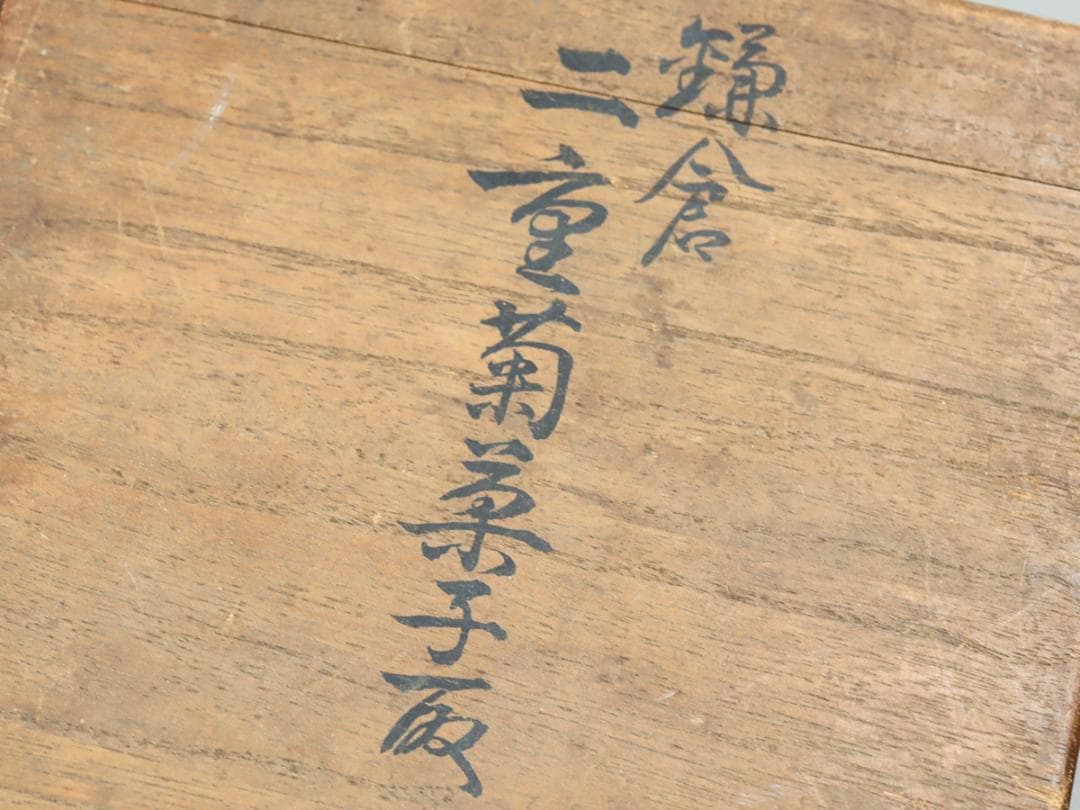 鎌倉
二重菊菓子